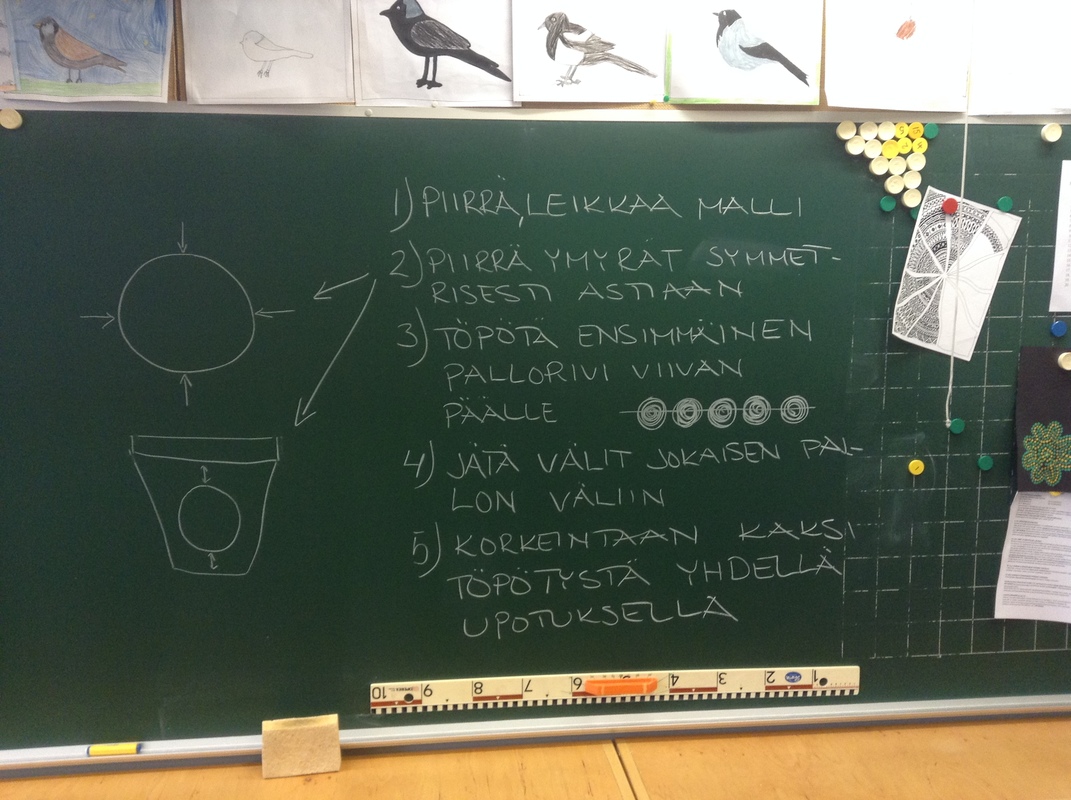 1) PIIRRÄ, LEIKKAA MALLI
2) PIIRRÄ YMYRÄT SYMMET-
RISESTI ASTIAAN
3) TÖPÖTÄ ENSIMMÄINEN
PALLORIVI VIIVAN
PÄÄLLE
4) JÄTÄ VÄLIT JOKAISEN PAL-
LON VÄLIIN
5) KORKEINTAAN KAKSI
TÖPÖTYSTÄ YHDELLÄ
UPOTUKSELLA
10 9 8 7 6 4 3 2 1